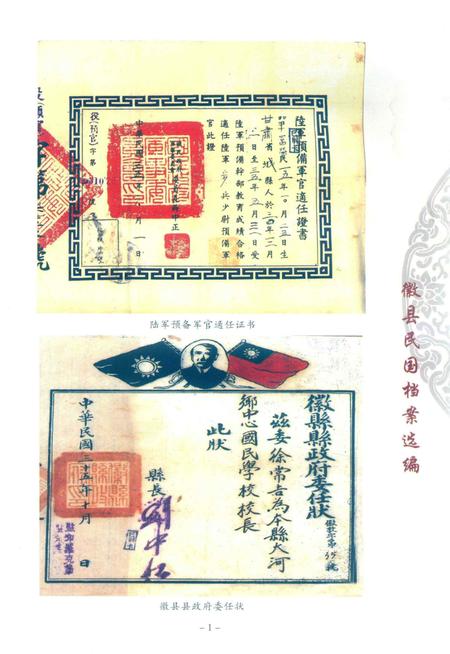 陸軍預備軍官適任證書
甘肅省
城縣人於三〇年一二月
一日至三五年五月三一日受
陸軍預備幹部教育成績合格
適任陸軍步兵少尉預備軍
官此證
中正
中華民國三五年
月一日
役(預官)字第
陆军预备军官适任证书
徽县民国档案选编
徽縣縣政府委任狀
茲委徐常吉為本縣大河
鄉中心國民學校校長
此狀
縣長
中華民國三十五年十月
日
徽县县政府委任状
- 1 -